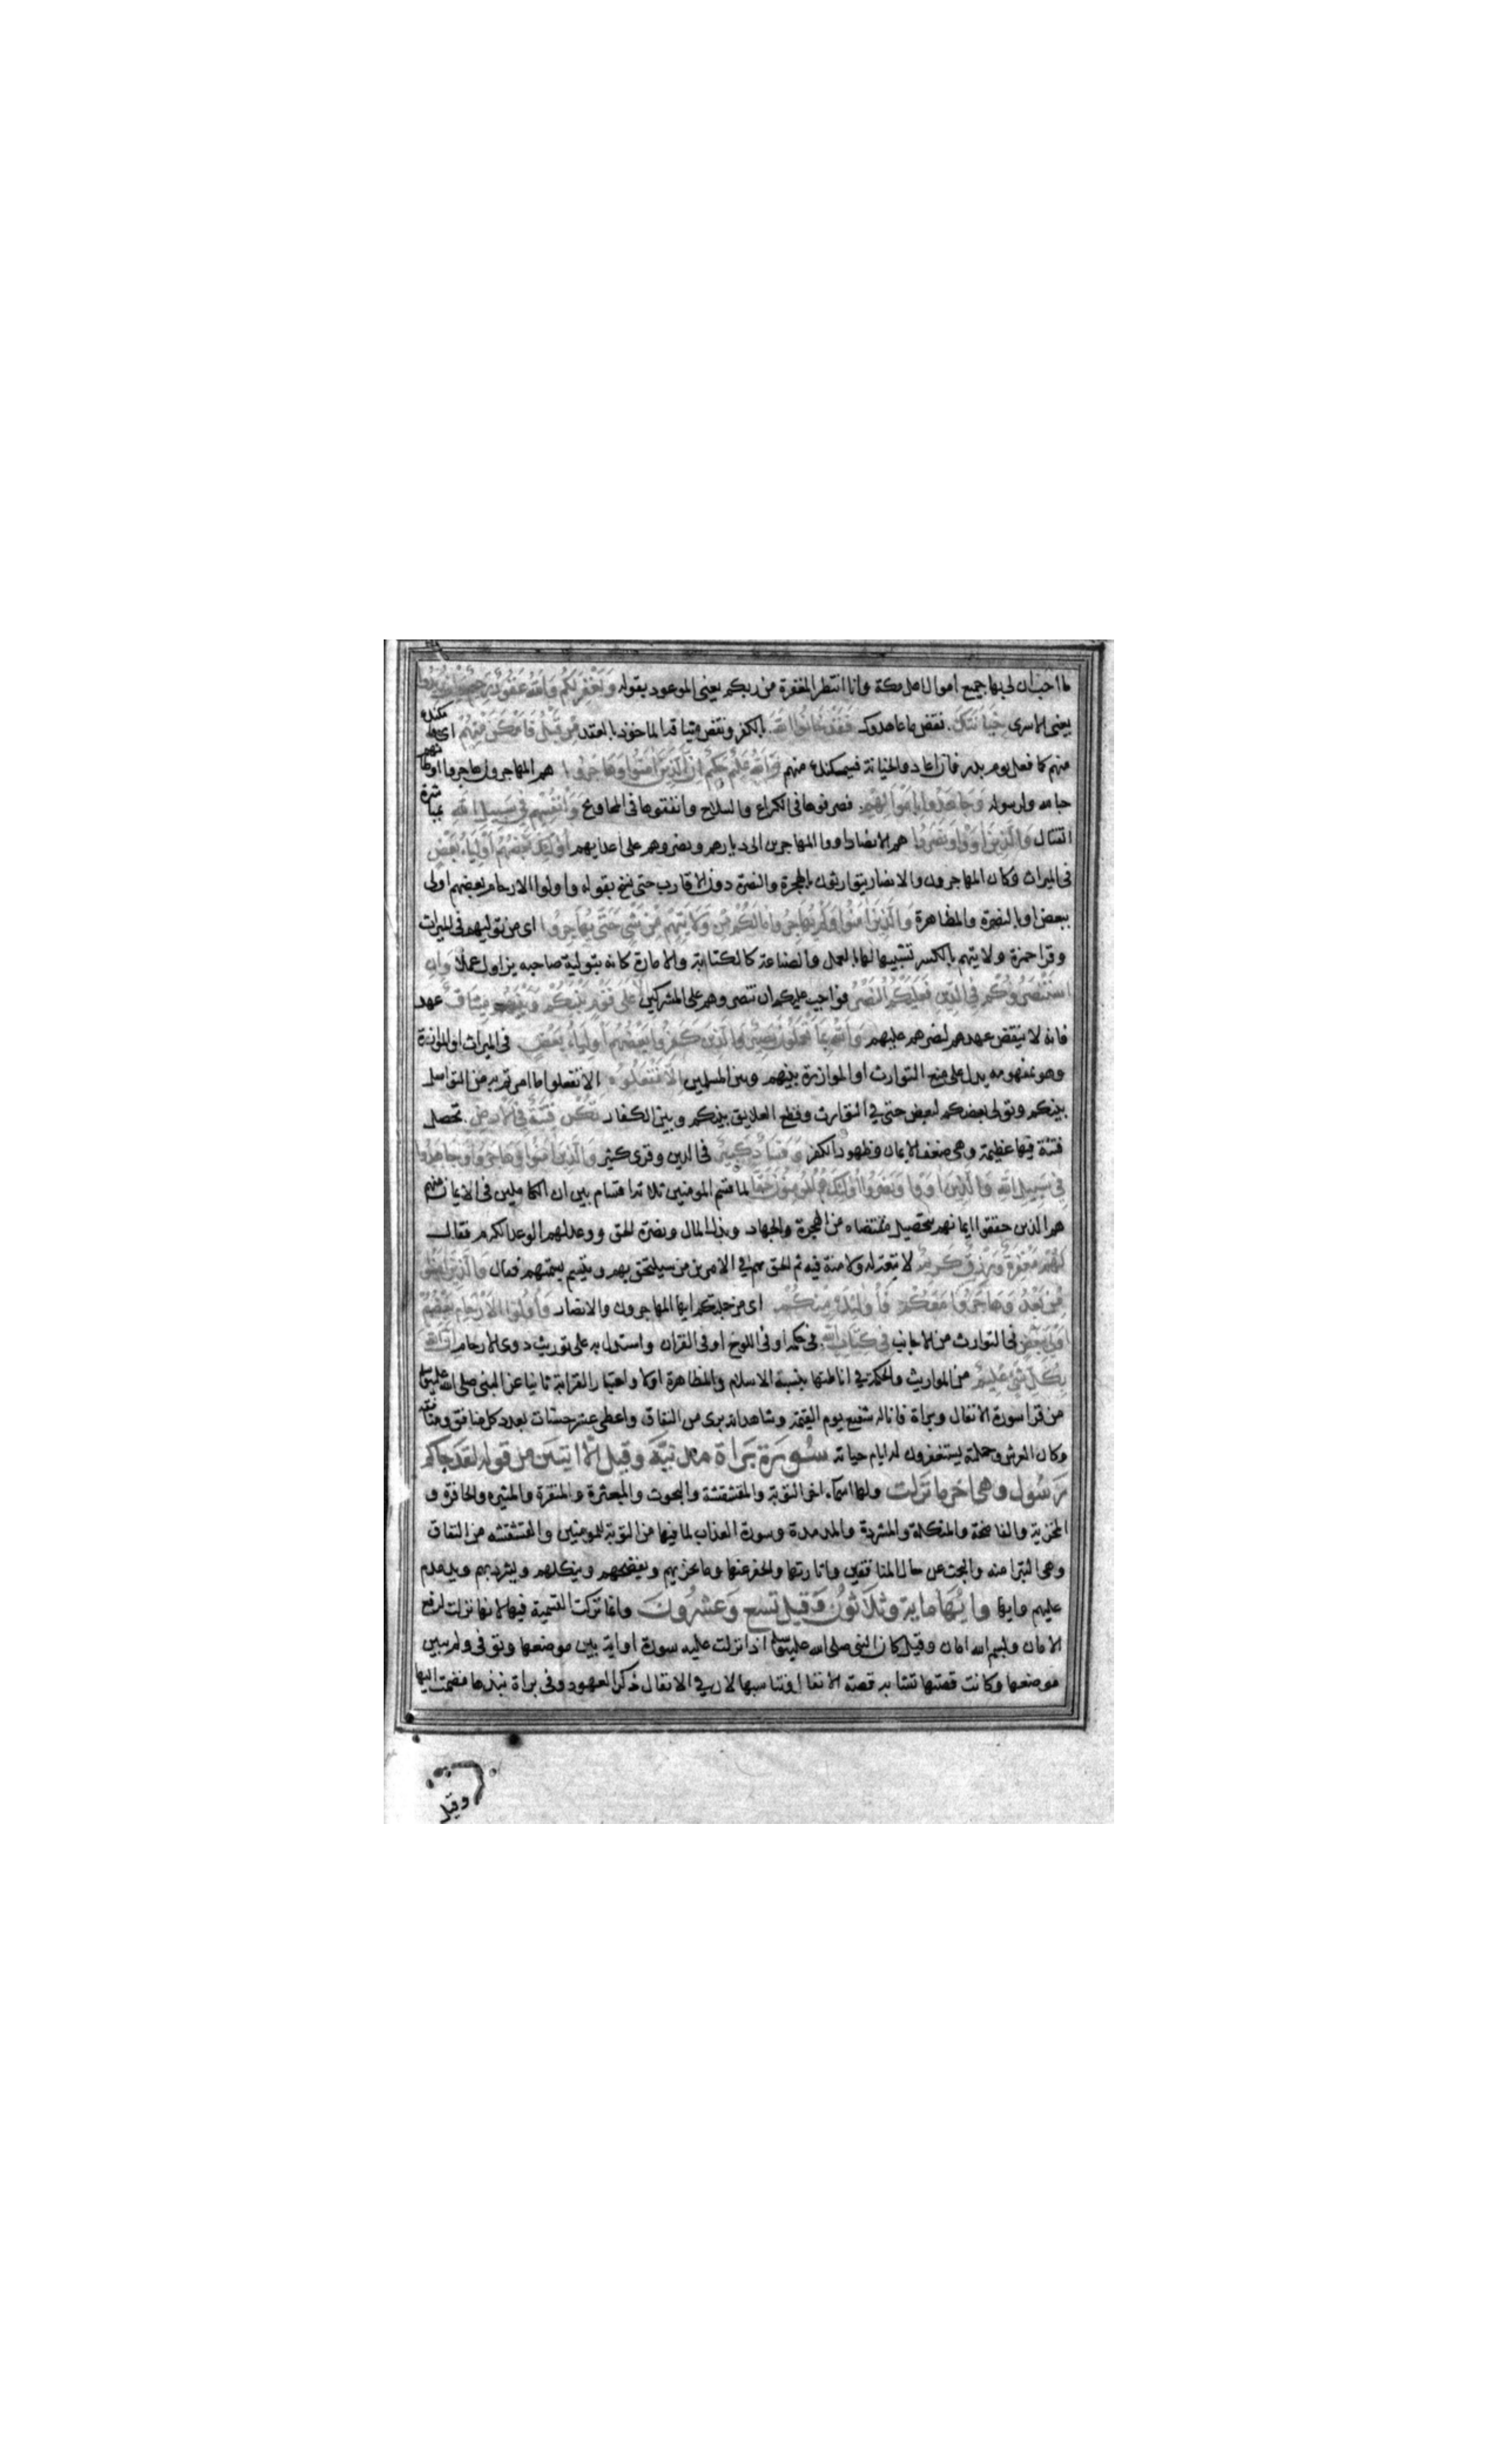 ما احب ان لى بها جميع اموال اهل مكة وانا انتظر المغفرة من ربكم يعنى الموعود بقوله ويغفر لكم والله غفور رحيم وان يريدوا
يعنى الاسرى خيانتك نقض ما عاهدوك فقد خانوا الله بالكفر ونقض ميثاقه الماخوذ بالعقد من قبل فامكن منهم اى
منهم كما فعل يوم بدر فان اعادوا الخيانة فسيمكنك منهم والله عليم حكيم ان الذين امنوا وهاجروا هم المهاجرون هاجروا اوطانهم
حبا لله ولرسوله وجاهدوا باموالهم فصرفوها فى الكراع والسلاح وانفقوها فى المحاويج وانفسهم فى سبيل الله بمباشرة
القتال والذين اووا ونصروا هم الانصار اووا المهاجرين الى ديارهم ونصروهم على اعدايهم اوليك بعضهم اولياء بعض
فى الميراث وكان المهاجرون والانصار يتوارثون بالهجرة والنصرة دون الاقارب حتى نسخ بقوله واولوا الارحام بعضهم اولى
ببعض او بالنصرة والمظاهرة والذين امنوا ولم يهاجروا ما لكم من ولايتهم من شى حتى يهاجروا اى من توليهم فى الميراث
وقرا حمزة ولايتهم بالكسر تشبيها لها بالعمل والصناعة كالكتابة والامارة كانه بتوليه صاحبه يزاول عملا وان
استنصروكم فى الدين فعليكم النصر فواجب عليكم ان تنصروهم على المشركين الا على قوم بينكم وبينهم ميثاق عهد
فانه لا ينقض عهدهم لنصرهم عليهم والله بما تعملون بصير والذين كفروا بعضهم اولياء بعض فى الميراث او الموازرة
وهو بمفهومه يدل على منع التوارث او الموازرة بينهم وبين المسلمين الا تفعلوه الا تفعلوا ما امرتم به من التواصل
بينكم وتولى بعضكم لبعض حتى فى التوارث وقطع العلايق بينكم وبين الكفار تكن فتنة فى الارض تحصل
فتنة فيها عظيمة وهى ضعف الايمان وظهور الكفر وفساد كبير فى الدين وقرى كثير والذين امنوا وهاجروا وجاهدوا
فى سبيل الله والذين اووا ونصروا اوليك هم المومنون حقا لما قسم المومنين ثلاثة اقسام بين ان الكاملين فى الايمان منهم
هم الذين حققوا ايمانهم بتحصيل مقتضاه من الهجرة والجهاد وبذل المال ونصرة الحق ووعد لهم الوعد الكريم فقال
لهم مغفرة ورزق كريم لا تبعة له ولا منة فيه ثم الحق بهم فى الامرين من سيلتحق بهم ويتسم بسمتهم فقال والذين امنوا
من بعد وهاجروا وجاهدوا معكم فاوليك منكم اى من جملتكم ايها المهاجرون والانصار واولوا الارحام بعضهم
اولى ببعض فى التوارث من الاجانب فى كتاب الله فى حكمه او فى اللوح او فى القران واستدل به على توريث ذوى الارحام ان الله
بكل شى عليم من المواريث والحكمة فى اناطتها بنسبة الاسلام والمظاهرة اولا واعتبار القرابة ثانيا عن النبى صلى الله عليه وسلم
من قرا سورة الانفال وبراة فانا له شفيع يوم القيمة وشاهد انه برى من النفاق واعطى عشر حسنات بعدد كل منافق ومنافقة
وكان العرش وحملته يستغفرون له ايام حياته سورة براة مدنية وقيل الا ايتين من قوله لقد جاكم
رسول وهى اخر ما نزلت ولها اسماء اخر التوبة والمقشقشة والبحوث والمبعثرة والمنقرة والمثيرة والحافرة و
المخزية والفاضحة والمنكلة والمشردة والمدمدمة وسورة العذاب لما فيها من التوبة للمومنين والقشقشة من النفاق
وهى التبرا منه والبحث عن حال المنافقين واثارتها والحفر عنها وما يخزيهم ويفضحهم وينكلهم ويشرد بهم ويدمدم
عليهم وايها وايها ماية وثلاثون وقيل تسع وعشرون وانما تركت التسمية فيها لانها نزلت لرفع
الامان وبسم الله امان وقيل كان النبى صلى الله عليه وسلم اذا نزلت عليه سورة او اية بين موضعها وتوفى ولم يبين
موضعها وكانت قصتها تشابه قصة الانفال وتناسبها لان فى الانفال ذكر العهود وفى براة نبذها فضمت اليها
وقيل